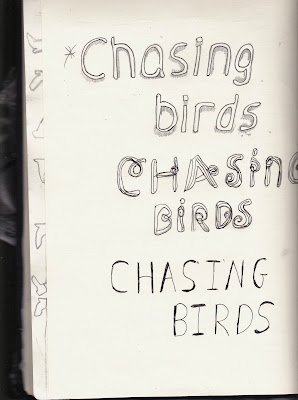 *Chasing
birds
CHASing
BiRDS
CHASING
BIRDS